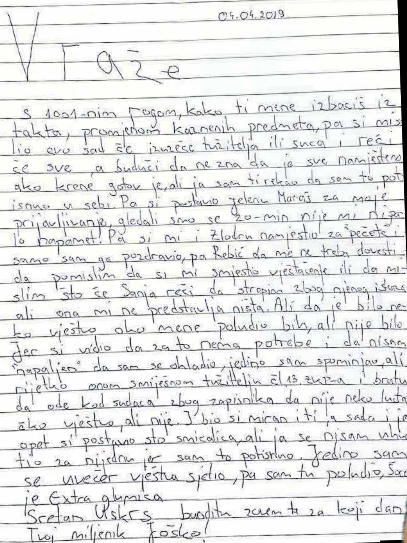 04.04.2019
Vraže
S 1001-nim rogom, kako ti mene izbaciš iz
takta, promjenom kaznenih predmeta, pa si mis
lio evo sad će izmeće tužitelja ili suca i reći
će sve, a budući da ne zna da je sve namješteno
ako krene gotov je, ali ja sam ti rekao da sam to pot
isnuo u sebi. Pa si postavio Jelenu Maraš za moje
prijavljivanje, gledali smo se 20-min nije mi ni pa
lo napamet! Pa si mi i Zlodru namjestio za pečete i
samo sam ga pozdravio, pa Rebić da me ne treba dovesti
da pomislim da si mi smjestio vještačenje ili da mi
slim što će Sanja reći da strepim zbog njenog iskaza
ali ona mi ne predstavlja ništa. Ali da je bilo ne
ko vještvo oko mene poludio bih, ali nije bilo
Jer si vidio da za to nema potrebe i da nisam
"napaljen" da sam se ohladio, jedino sam spominjao, ali
rijetko onom smiješnom tužitelju čl 15 i bratu
da ode kod sudaca zbog zapisnika da nije neko
ako vještvo, ali nije. I bio si miran i ti, a sada je
opet si postavio sto smicalica, ali ja se nisam uhva
tio za nijednu jer sam to potisnuo. Jedino sam
se uvečer vještva sjetio, pa sam tu poludio,
je Extra glumica
Sretan Uskrs zovem te za koji dan
Tvoj miljenik Joško!